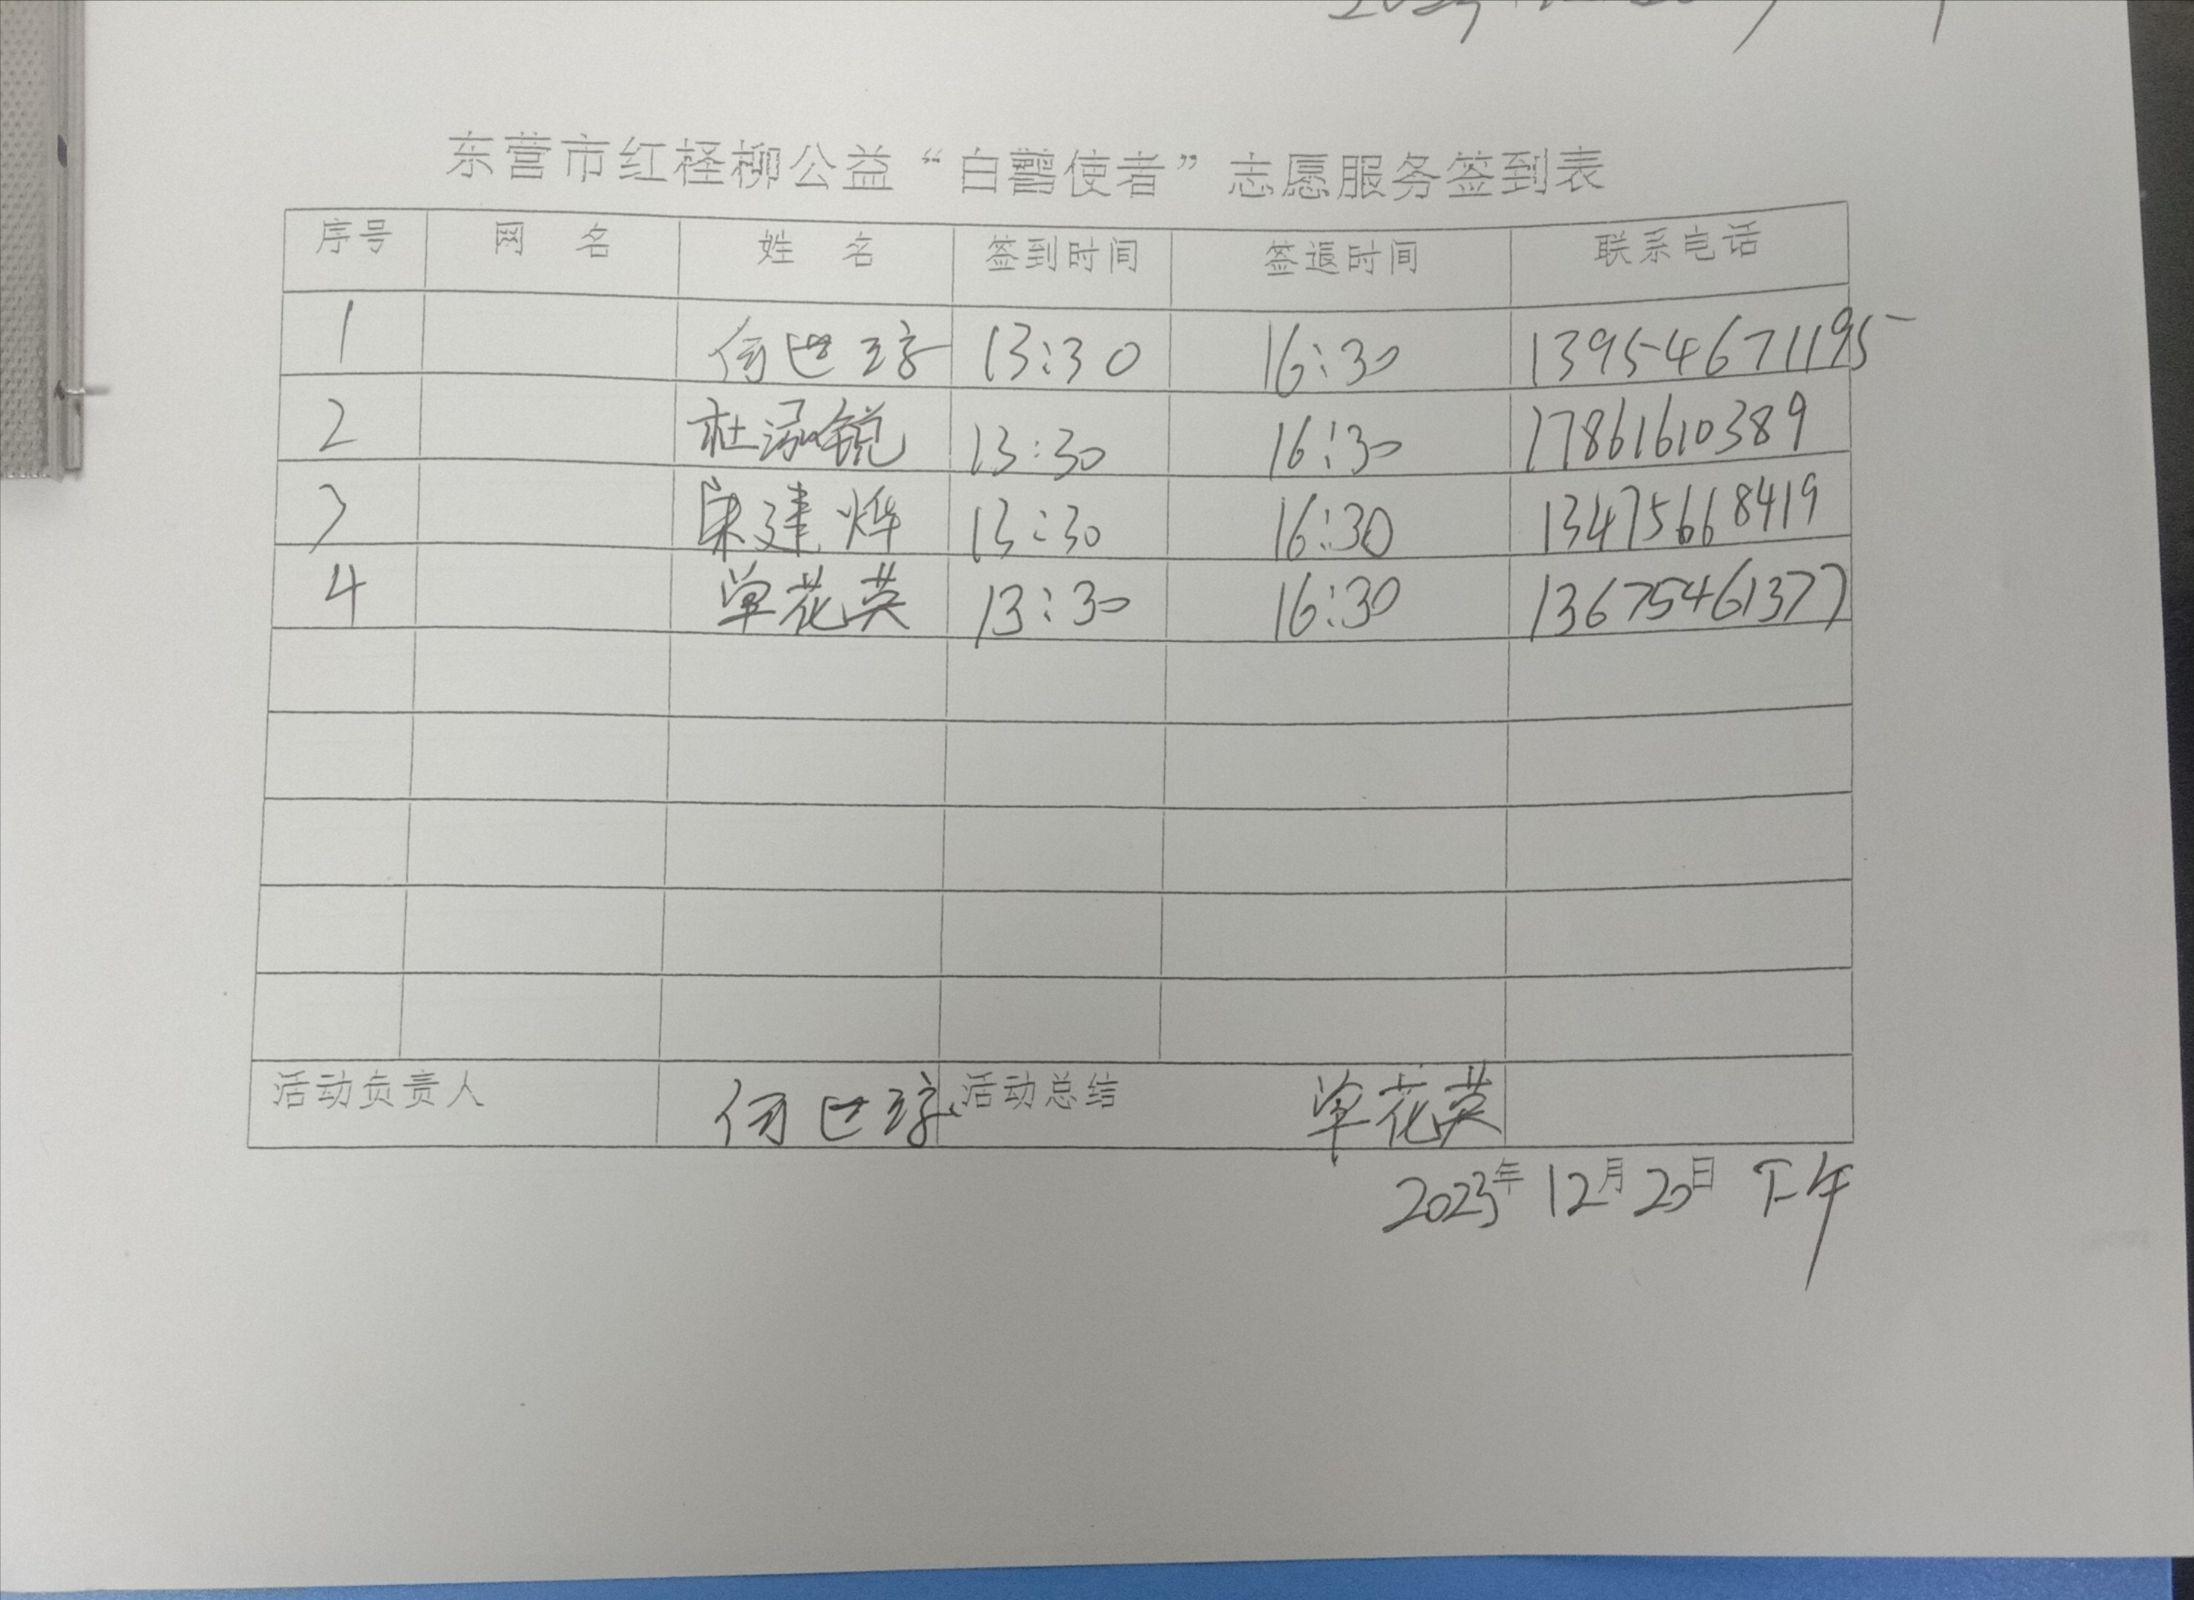 东营市红柽柳公益“白鷖使者”志愿服务签到表
序号 网 名 姓 名 签到时间 签退时间 联系电话
1 何世 13:30 16:30 13954671195
2 杜泓锐 13:30 16:30 17861610389
3 宋建烨 13:30 16:30 13475668419
4 单花英 13:30 16:30 13675461377
活动负责人 何世 活动总结 单花英
2023年 12月 20日 下午